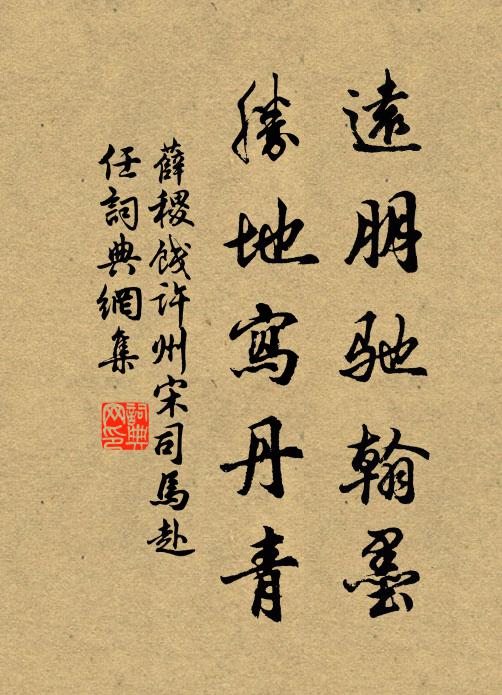 遠朋馳翰墨
勝地寫丹青
薛稷餞許州宋司馬赴
任詞典網集
詞典
网印